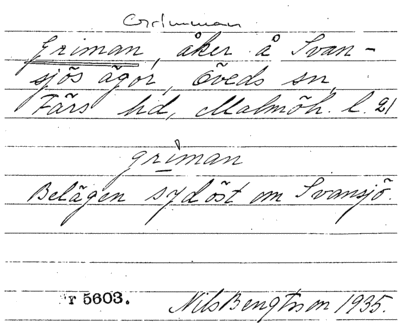 Grimman
Griman, åker å Svan-
sjös ägor, Öveds sn,
Färs hd, Malmöh. l. 21
griman
Belägen sydöst om Svansjö.
r 5603. Nils Bengtsson 1935.